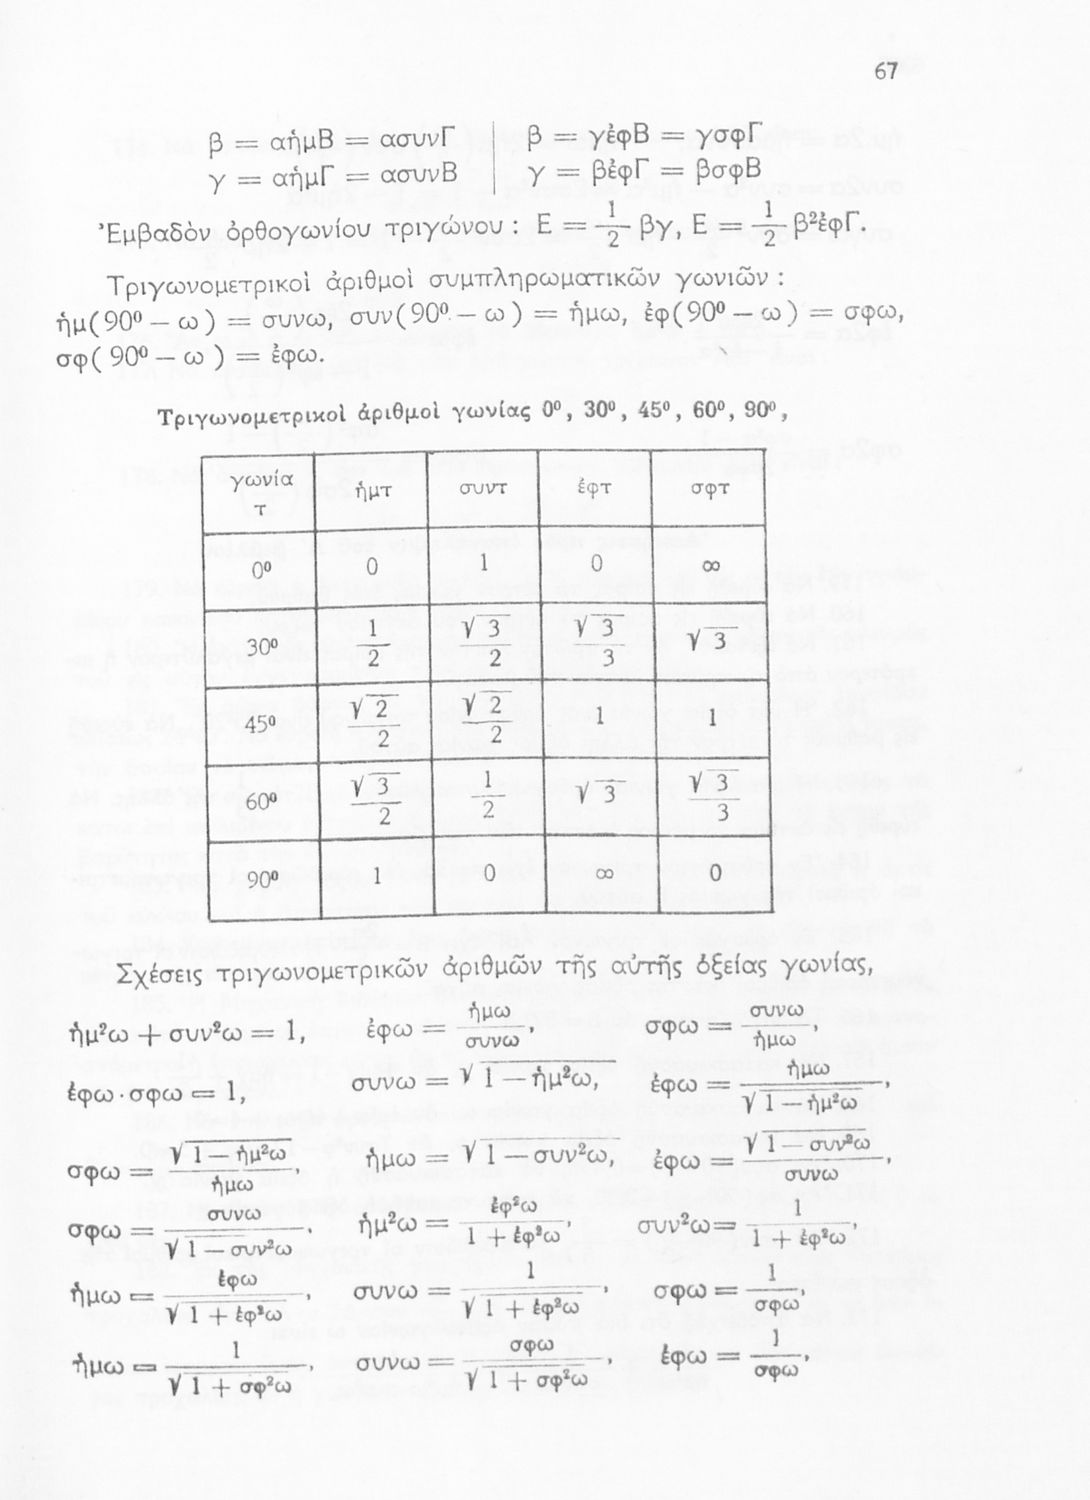 67
β = αἡμΒ = ασυνΓ | β = γἐφΒ = γσφΓ
γ = αἡμΓ = ασυνΒ | γ = βἐφΓ = βσφΒ
Ἐμβαδὸν ὀρθογωνίου τριγώνου : Ε = 1/2 βγ, Ε = 1/2 β²ἐφΓ.
Τριγωνομετρικοὶ ἀριθμοὶ συμπληρωματικῶν γωνιῶν :
ἡμ(90⁰ — ω) = συνω, συν(90⁰ — ω) = ἡμω, ἐφ(90⁰ — ω) = σφω,
σφ(90⁰ — ω) = ἐφω.
Τριγωνομετρικοὶ ἀριθμοὶ γωνίας 0⁰, 30⁰, 45⁰, 60⁰, 90⁰,
γωνία τ | ἡμτ | συντ | ἐφτ | σφτ
0⁰ | 0 | 1 | 0 | ∞
30⁰ | 1/2 | √3/2 | √3/3 | √3
45⁰ | √2/2 | √2/2 | 1 | 1
60⁰ | √3/2 | 1/2 | √3 | √3/3
90⁰ | 1 | 0 | ∞ | 0
Σχέσεις τριγωνομετρικῶν ἀριθμῶν τῆς αὐτῆς ὀξείας γωνίας,
ἡμ²ω + συν²ω = 1, ἐφω = ἡμω/συνω, σφω = συνω/ἡμω,
ἐφω · σφω = 1, συνω = √(1 — ἡμ²ω), ἐφω = ἡμω/√(1 — ἡμ²ω),
σφω = √(1 — ἡμ²ω)/ἡμω, ἡμω = √(1 — συν²ω), ἐφω = √(1 — συν²ω)/συνω,
σφω = συνω/√(1 — συν²ω). ἡμ²ω = ἐφ²ω/(1 + ἐφ²ω), συν²ω = 1/(1 + ἐφ²ω),
ἡμω = ἐφω/√(1 + ἐφ²ω), συνω = 1/√(1 + ἐφ²ω), σφω = 1/σφω,
ἡμω = 1/√(1 + σφ²ω), συνω = σφω/√(1 + σφ²ω), ἐφω = 1/σφω,